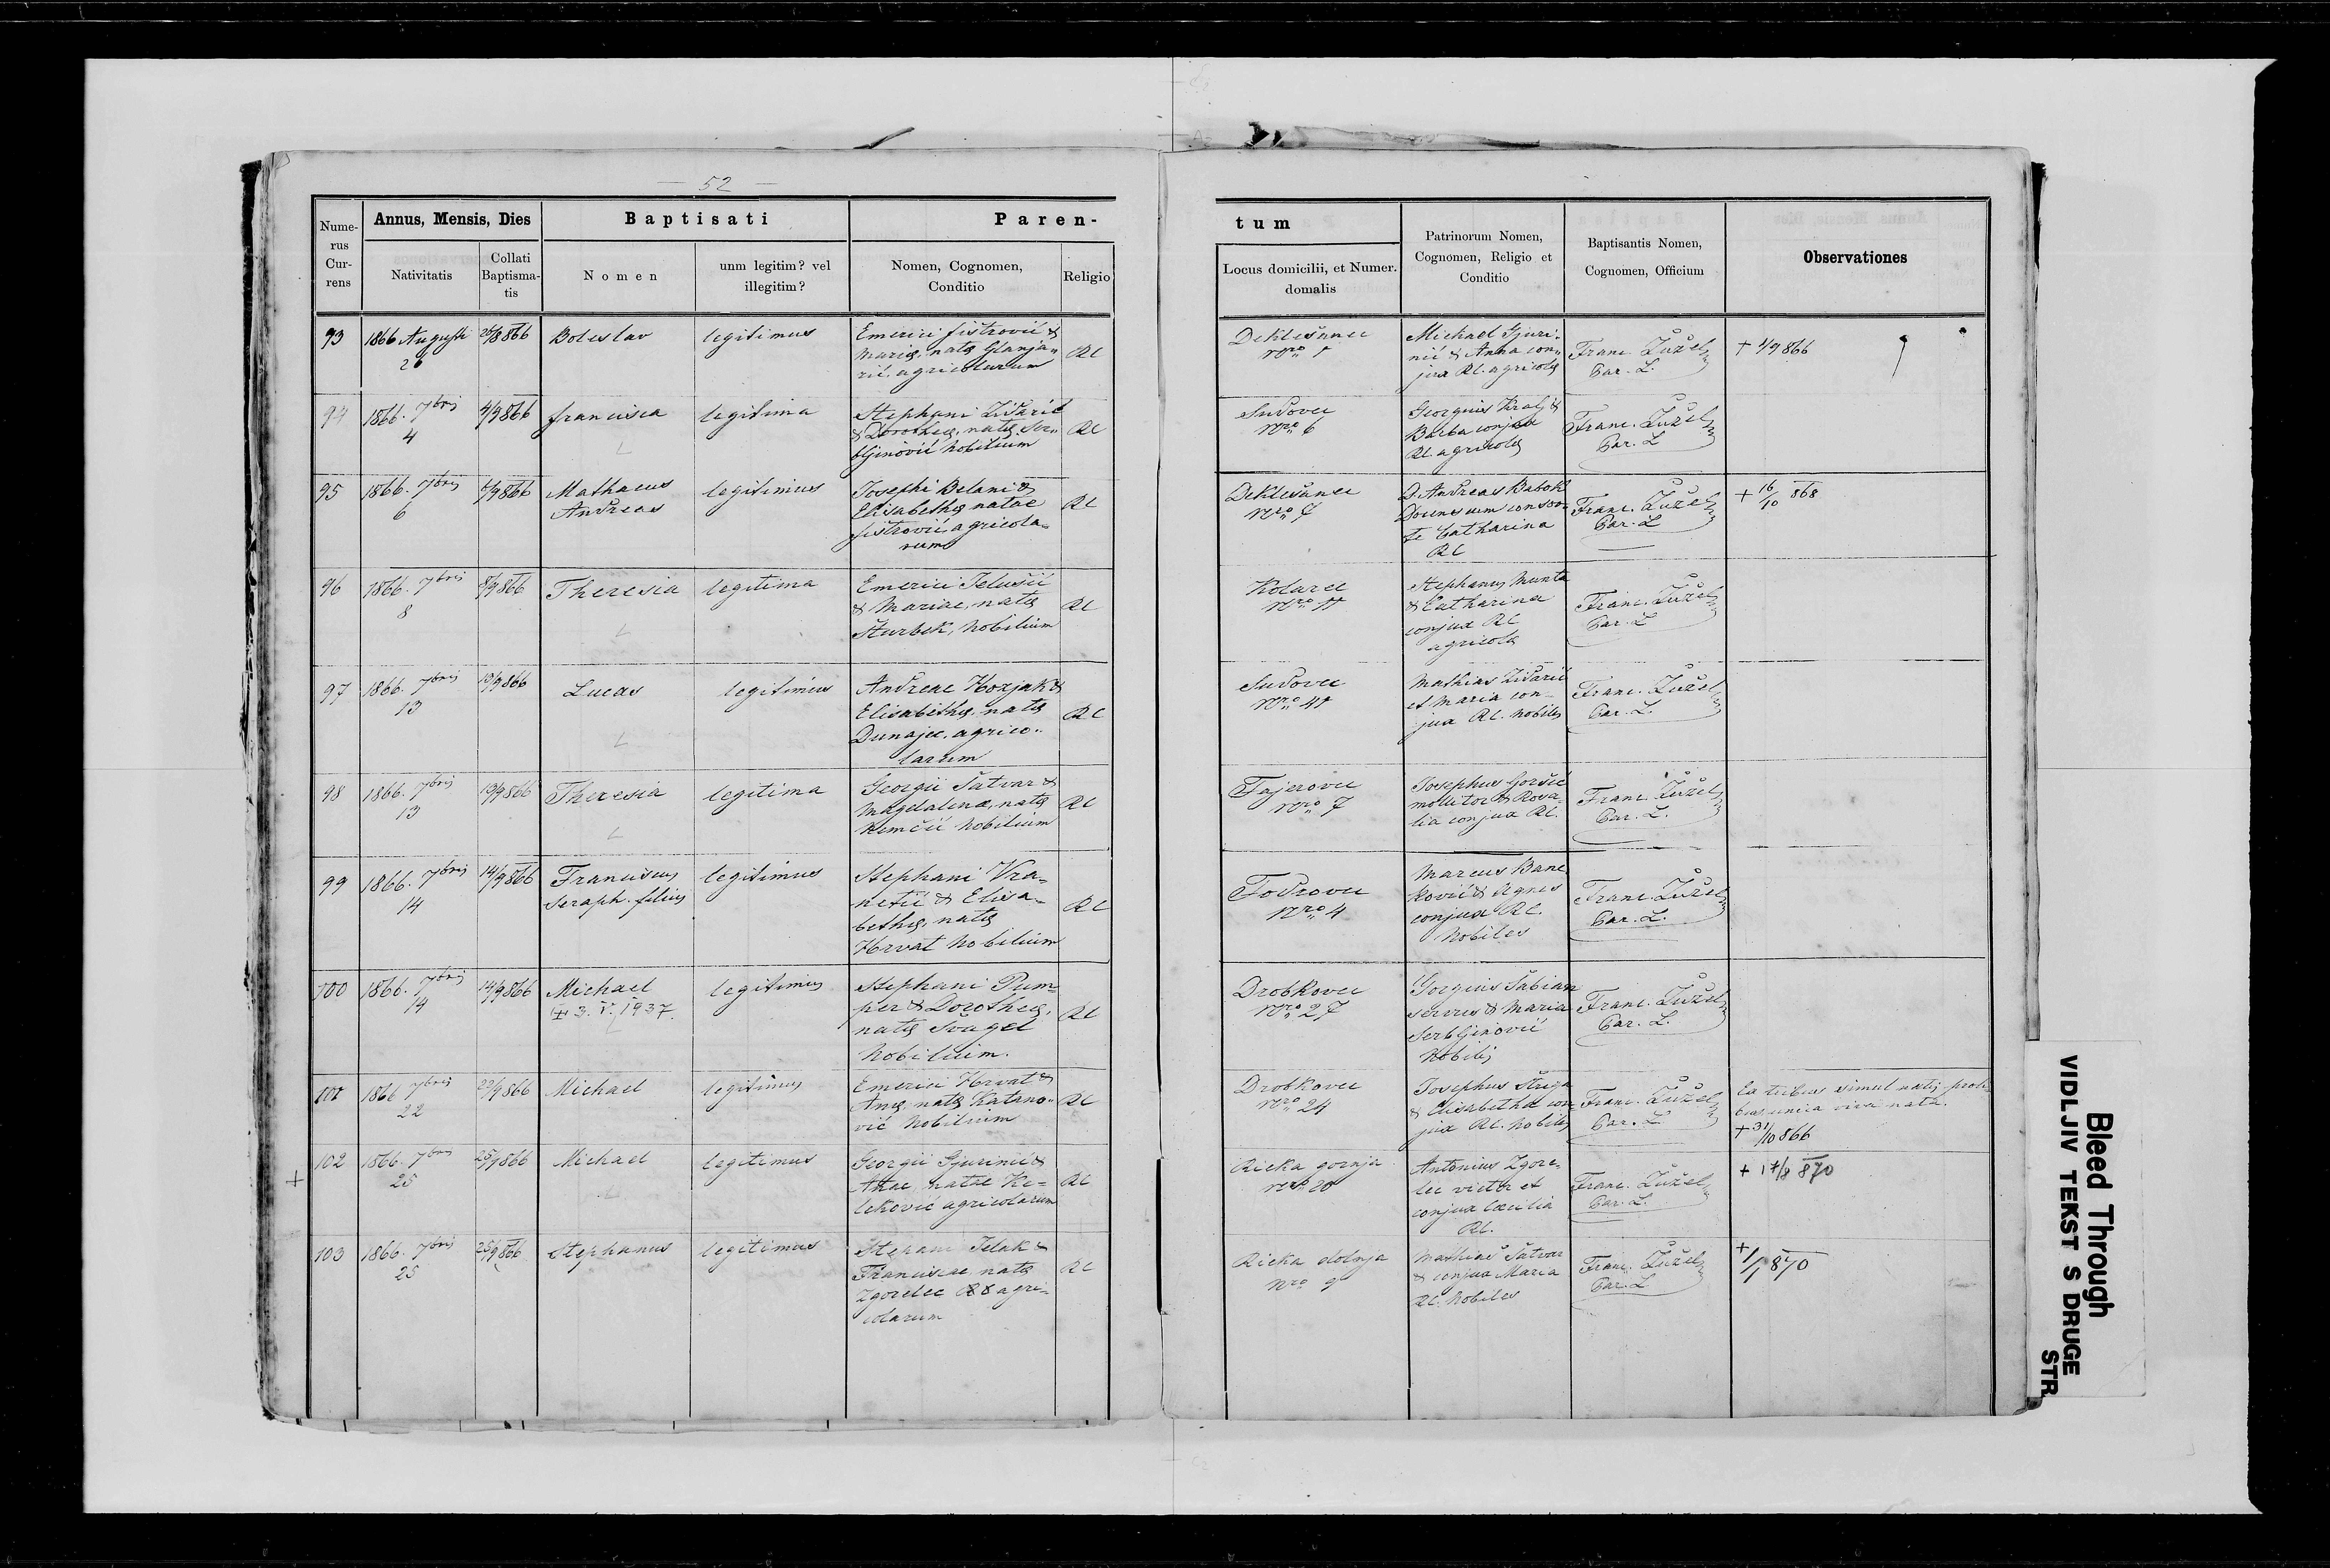 52
Nume-
rus
Cur-
rens
Annus, Mensis, Dies
Nativitatis
Collati
Baptisma-
tis
Baptisati
Nomen
unm legitim? vel
illegitim?
Paren-
Nomen, Cognomen,
Conditio
Religio
tum
Locus domicilii, et Numer.
domalis
Patrinorum Nomen,
Cognomen, Religio et
Conditio
Baptisantis Nomen,
Cognomen, Officium
Observationes
93
1866 Augusti
26
26/8 866
Boleslav
legitimus
Emerici Fistrović &
Mariae, natae Glanja-
rić, agricolarum
RC
Deklešanec
Nro 1
Michael Gjuri-
nić & Anna con-
jux RC. agricolae
Franc. Žužel
Par. L.
+ 4/9 866
94
1866. 7bris
4
4/9 866
Francisca
legitima
Stephani Židarić
& Dorotheae, natae Ser-
bljinović Nobilium
RC
Sudovec
Nro 6
Georgius Kralj &
Barba conjux
RC. agricolae
Franc. Žužel
Par. L
95
1866. 7bris
6
866
Mathaeus
Andreas
legitimus
Josephi Belani &
Elisabethae natae
Fistrović, agricola-
rum
RC
Deklešanec
Nro 7
D. Andreas Babok
cum consor-
te Catharina
RC
Franc. Žužel
Par. L
+ 16/10 868
96
1866. 7bris
8
8/9 866
Theresia
legitima
Emerici Jelušić
& Mariae, natae
Sturbek, Nobilium
RC
Kolarec
Nro 11
Stephanus Munta
& Catharina
conjux RC
agricolae
Franc. Žužel
Par. L
97
1866. 7bris
13
13/9 866
Lucas
legitimus
Andreae Horjak &
Elisabethae, natae
Dunajec, agrico-
larum
RC
Sudovec
Nro 41
Mathias Židarić
et Maria con-
jux RC. Nobiles
Franc. Žužel
Par. L.
98
1866. 7bris
13
13/9 866
Theresia
legitima
Georgii Šatvar &
Magdalenae, natae
Nemčić Nobilium
RC
Fajerovec
Nro 7
Josephus Goršić
mollitor & Rosa-
lia conjux RC.
Franc. Žužel
Par. L.
99
1866. 7bris
14
14/9 866
Franciscus
Seraph. filius
legitimus
Stephani Vra-
netić & Elisa-
bethae, natae
Horvat Nobilium
RC
Fodrovec
Nro 4
Marcus Banc
ković & Agnes
conjux RC.
Nobiles
Franc. Žužel
Par. L.
100
1866. 7bris
14
14/9 866
Michael
+ 3. V. 1937.
legitimus
Stephani Pum-
per & Dorotheae,
natae Švagel
Nobilium.
RC
Drobkovec
Nro 27
Gorgius Šabian
servus & Maria
Serbljinović
Nobilis
Franc. Žužel
Par. L.
101
1866 7bris
22
22/9 866
Michael
legitimus
Emerici Horvat &
Anae, natae Katano-
vić Nobilium
RC
Drobkovec
Nro 24
Josephus Štriga
& Elisabetha con-
jux RC. Nobiles
Franc. Žužel
Par. L
Ex tribus simul natis proli-
bus unica viva nata.
+ 31/10 866
+
102
1866. 7bris
25
25/9 866
Michael
legitimus
Georgii Gjurinić &
Anae natae Ke-
leković agricolarum
RC
Rieka gornja
Nro 20
Antonius Zgore-
lec victor et
conjux Caecilia
RC.
Franc. Žužel
Par. L.
+ 17/8 870
103
1866. 7bris
25
25/9 866
Stephanus
legitimus
Stepani Jelak &
Franciscae natae
Zgorelec agri-
colarum
RC
Rieka dolnja
Nro 9
Mathias Šatvar
& conjux Maria
RC. Nobiles
Franc. Žužel
Par. L
+ 1/1 870
Bleed Through
VIDLJIV TEKST S DRUGE
STR